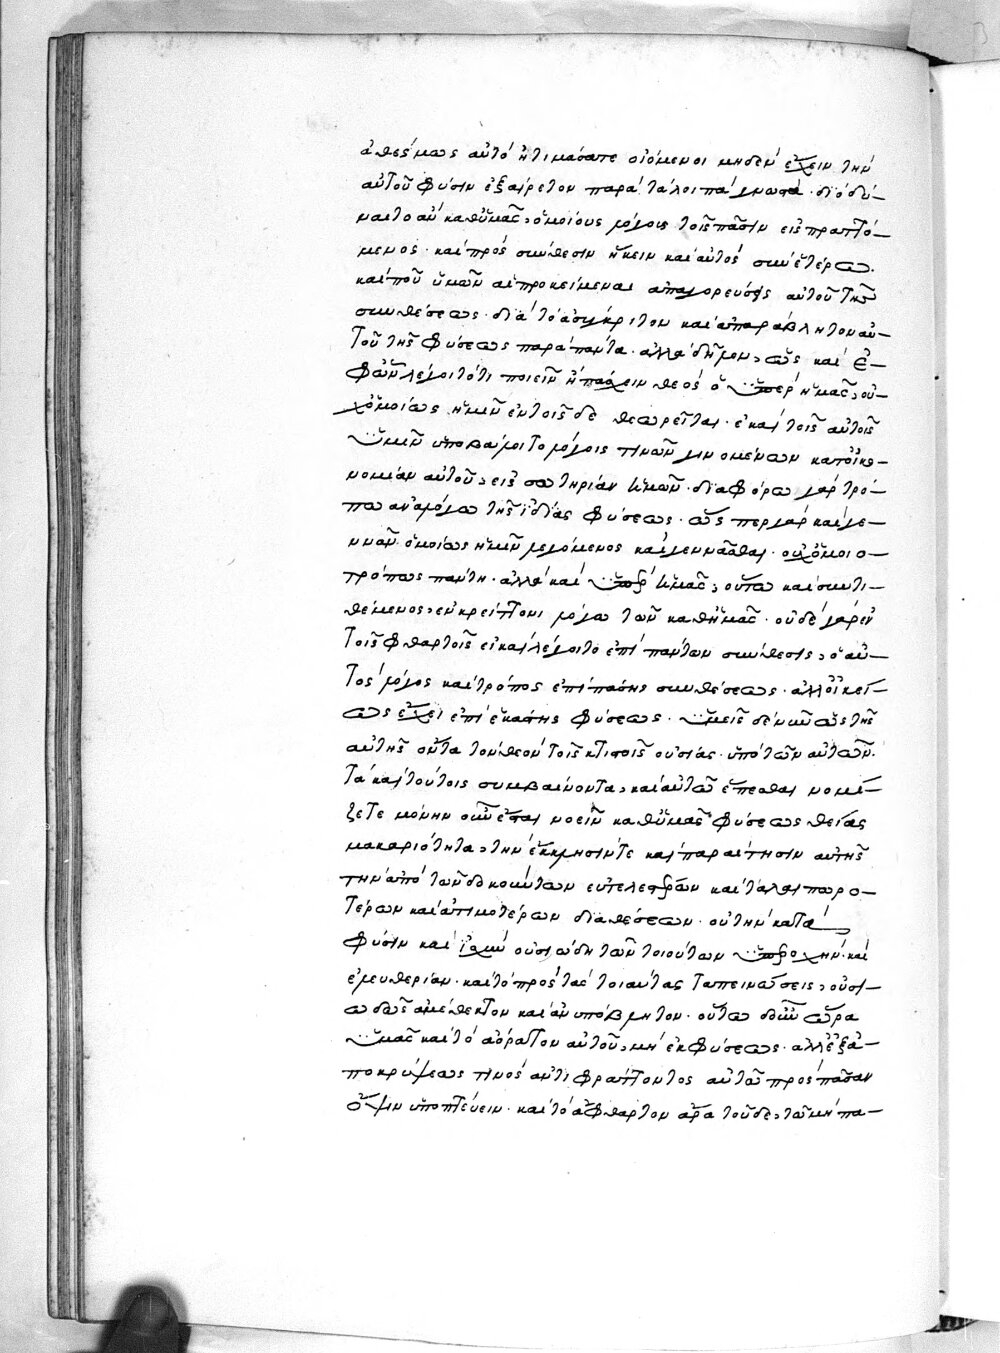 ἀθεσμως αὐτὸ ἠτιμάσατε οἰόμενοι μηδὲν ἔχειν τὴν
αὐτοῦ φύσιν ἐξαίρετον παρὰ τὰ λοιπὰ · διὸ δύ-
ναιτο ἂν καθ' ὑμᾶς, ὁμοίους λόγους τοῖς πᾶσιν εἰσπραττό-
μενος · καὶ πρὸς σύνθεσιν ἥκειν καὶ αὐτὸς σὺν ἑτέρω.
καὶ ποῦ ὑμῶν αἱ προκείμεναι ἀπαγορεύσεις αὐτοῦ τῆς
συνθέσεως · διὰ τὸ ἀσύγκριτον καὶ ἀπαράβλητον αὐ-
τοῦ τῆς φύσεως παρὰ πάντα · ἀλλὰ δῆλον, ὡς καὶ ἐ-
φ' ὧν λέγοιτό τι ποιεῖν ἢ πάσχειν θεὸς ὁ ὑπὲρ ἡμᾶς, οὐ-
χ' ὁμοίως ἡμῖν ἐν τοῖσδε θεωρεῖται · εἰ καὶ τοῖς αὐτοῖς
ἡμῖν ὑποβαίνοι τὸ λόγοις τινῶν γινομένων κατ' οἰκο-
νομίαν αὐτοῦ, εἰς σωτηρίαν ἡμῶν · διαφόρω γὰρ τρό-
πω ἀναλόγω τῆς ἰδίας φύσεως · ὥσπερ γὰρ καὶ γε-
ννᾶν ὁμοίως ἡμῖν λεγόμενος καὶ γεννᾶσθαι · οὐχ ὁμοιο-
τρόπως πάντη · ἀλλὰ καὶ ὑπὲρ ἡμᾶς, οὕτω καὶ συντι-
θέμενος, ἐν κρείττονι λόγω τῶν καθ' ἡμᾶς · οὐδὲ γὰρ ἐν
τοῖς φθαρτοῖς εἰ καὶ λέγοιτο ἐπὶ πάντων σύνθεσις, ὁ αὐ-
τὸς λόγος καὶ τρόπος ἐπὶ πάσης συνθέσεως · ἀλλ' οἰκεί-
ως ἔχει ἐπὶ ἑκάστης φύσεως · ὑμεῖς δὲ νῦν ὡς τῆς
αὐτῆς ὄντα τὸν θεὸν τοῖς κτιστοῖς οὐσίας · ὑπὸ τῶν αὐτῶν ·
τὰ καὶ τούτοις συμβαίνοντα, καὶ αὐτῶ ἕπεσθαι νομί-
ζετε μόνην οὖν ἔσται νοεῖν καθ' ὑμᾶς φύσεως θείας
μακαριότητα, τὴν ἔκκλησίν τε καὶ παραίτησιν αὐτῆς
τὴν ἀπὸ τῶν δοκούντων εὐτελεστέρων καὶ ταλαιπωρο-
τέρων καὶ ἀτιμοτέρων διαθέσεων · οὐ τὴν κατὰ
φύσιν καὶ ἰσχὺν οὐσιώδη τῶν τοιούτων ὑπεροχὴν · καὶ
ἐλευθερίαν · καὶ τὸ πρὸς τὰς τοιαύτας ταπεινώσεις, οὐσι-
ωδῶς ἀμέθεκτον καὶ ἀνυπόβλητον · οὕτω δ' οὖν ὥρα
ὑμᾶς καὶ τὸ ἀόρατον αὐτοῦ, μὴ ἐκ φύσεως · ἀλλ' ἐξ ἀ-
ποκρύψεως τινὸς ἀντιφράττοντος αὐτῶ πρὸς πᾶσαν
ὄψιν ὑποπτεύειν · καὶ τὸ ἄφθαρτον ἄρα τοῦδε, τῶ μὴ πα-